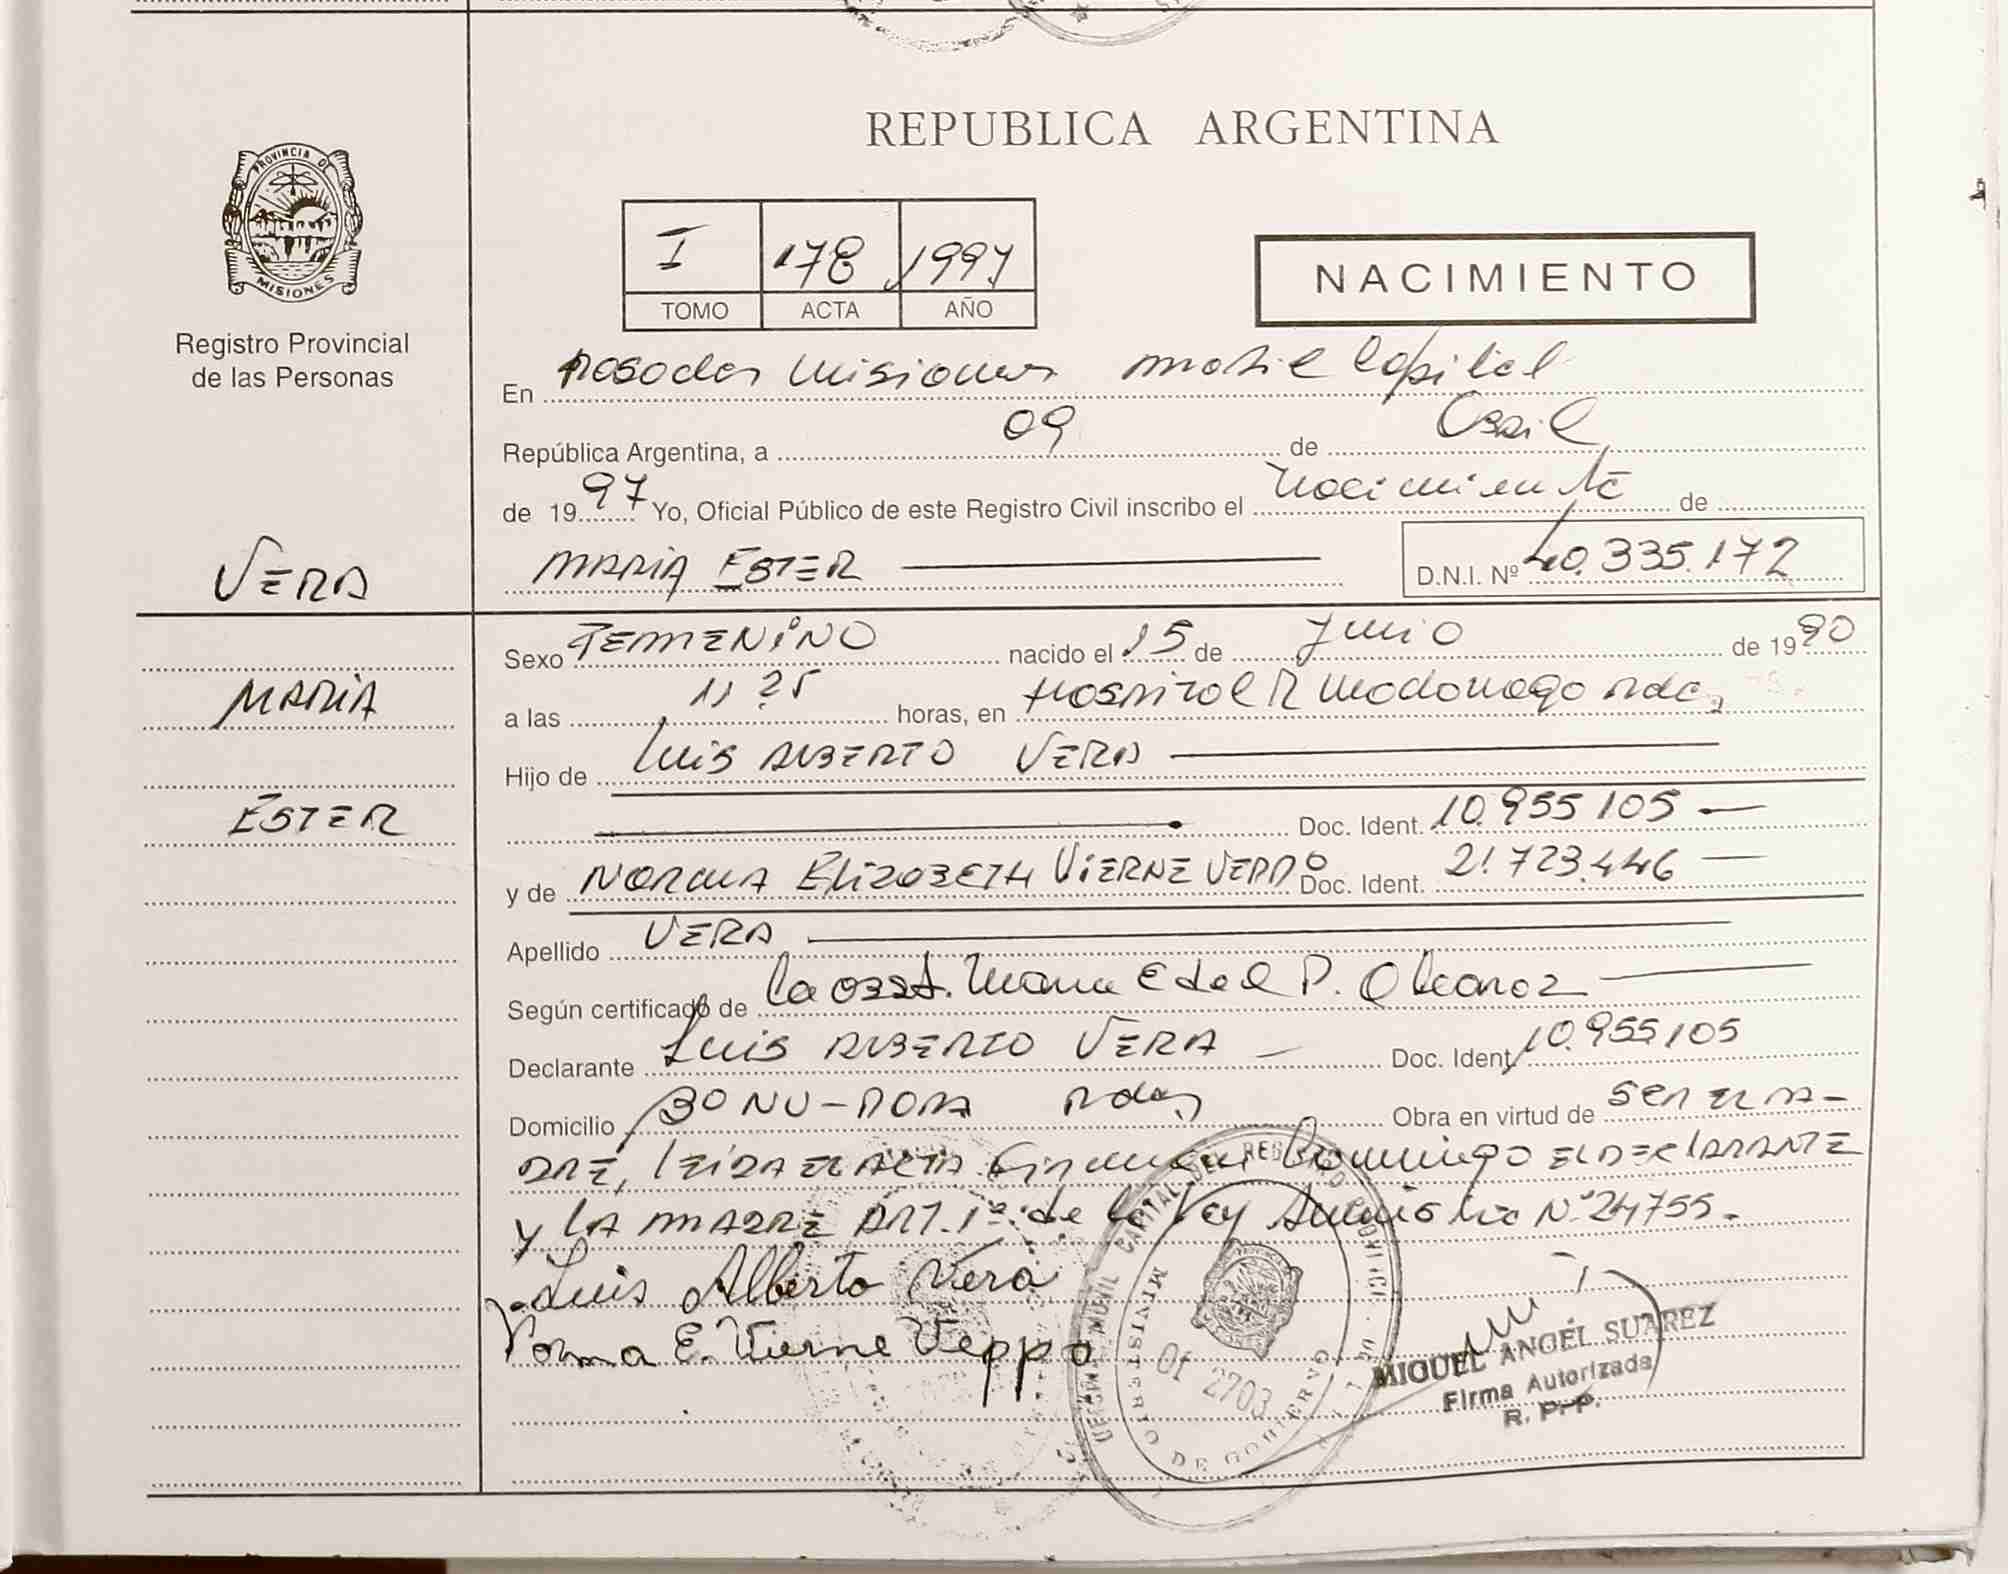 REPUBLICA ARGENTINA
PROVINCIA DE
MISIONES
Registro Provincial
de las Personas
I 178 1997
TOMO ACTA AÑO
NACIMIENTO
En Posadas Misiones Movil Capital
República Argentina, a 09 de Abril
de 1997 Yo, Oficial Público de este Registro Civil inscribo el Nacimiento de
VERA
MARIA ESTER D.N.I. Nº 40.335.172
Sexo FEMENINO nacido el 15 de Junio de 1990
MARIA
a las 11 25 horas, en Hospital R Madariaga Pdas,
Hijo de Luis ALBERTO VERA
ESTER
Doc. Ident. 10.955 105
y de NORMA ELIZABETH VIERNE VEPPO Doc. Ident. 21.723.446
Apellido VERA
Según certificado de la obst. Maria Edel P.
Declarante Luis ALBERTO VERA Doc. Ident. 10.955105
Domicilio Bº ÑU-PORA Pdas, Obra en virtud de SER EL PA-
DRE, LEIDA EL ACTA Firman Conmigo EL DECLARANTE
y LA MADRE ART. 1º: de la Ley Amnistia Nº 24755.
Luis Alberto Vera
Norma E. Vierne Veppo
MINISTERIO DE GOBIERNO
Of 2703
MIGUEL ANGEL SUAREZ
Firma Autorizada
R. P. P.